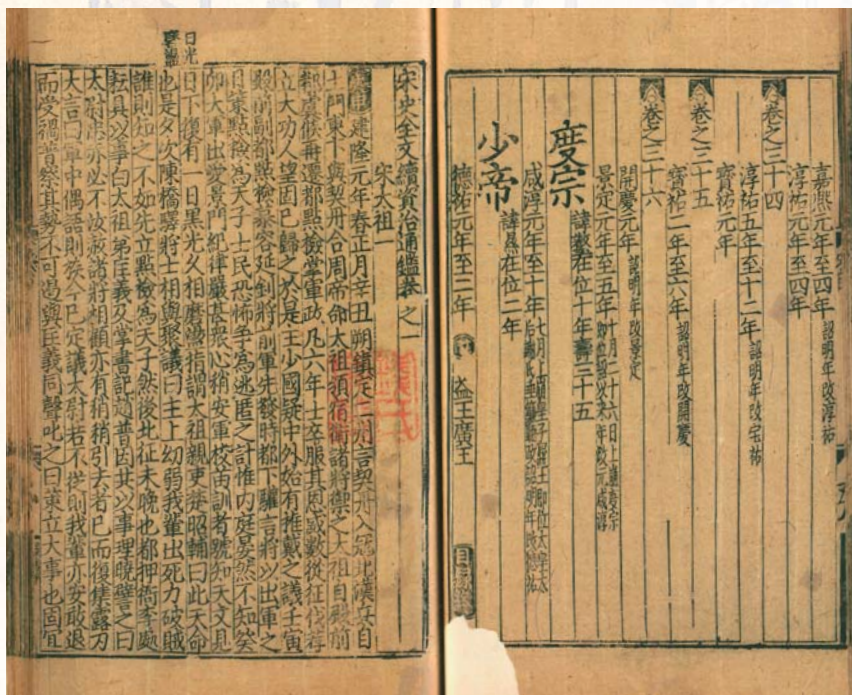 嘉熙元年至四年 詔明年改淳祐
淳祐元年至四年
卷之三十四
淳祐五年至十二年 詔明年改宝祐
寳祐元年
卷之三十五
寳祐二年至六年 詔明年改開慶
卷之三十六
開慶元年 詔明年改景定
景定元年至五年 十月二十六日上崩度宗即位詔以來年改元咸淳
度宗 諱禥在位十年壽三十五
咸淳元年至十年 七月上崩皇子即位太皇太后
少帝 諱㬎在位二年
德祐元年至二年 附 益王廣王
目録終
日光摩盪
宋史全文續資治通鑑卷之一
宋太祖一
庚申建隆元年春正月辛丑朔鎮定二州言契丹入冦北漢兵自
土門東下與契丹合周帝命太祖領宿衛諸將禦之太祖自殿前
都虞候再遷都點檢掌軍政凡六年士卒服其恩威數從征伐荐
立大功人望固已歸之於是主少國疑中外始有推戴之議壬寅
殿前副都點檢慕容延釗將前軍先發時都下讙言將以出軍之
日䇿點檢為天子士民恐怖争為逃匿之計惟内庭晏然不知癸
卯大軍出愛景門紀律嚴甚衆心稍安軍校苗訓者號知天文見
日下復有一日黒光久相磨盪指謂太祖親吏楚昭輔曰此天命
也是夕次陳橋驛將士相與聚議曰主上幼弱我輩出死力破賊
誰則知之不如先立點檢為天子然後北征未晚也都押衙李處
耘具以事白太祖弟匡義及掌書記趙普因共以事理曉譬之曰
太尉忠赤必不汝赦諸將相顧亦有稍稍引去者已而復集露刃
大言曰軍中偶語則族今已定議太尉若不從則我輩亦安敢退
而受禍普察其勢不可遏與匡義同聲叱之曰䇿立大事也固宜